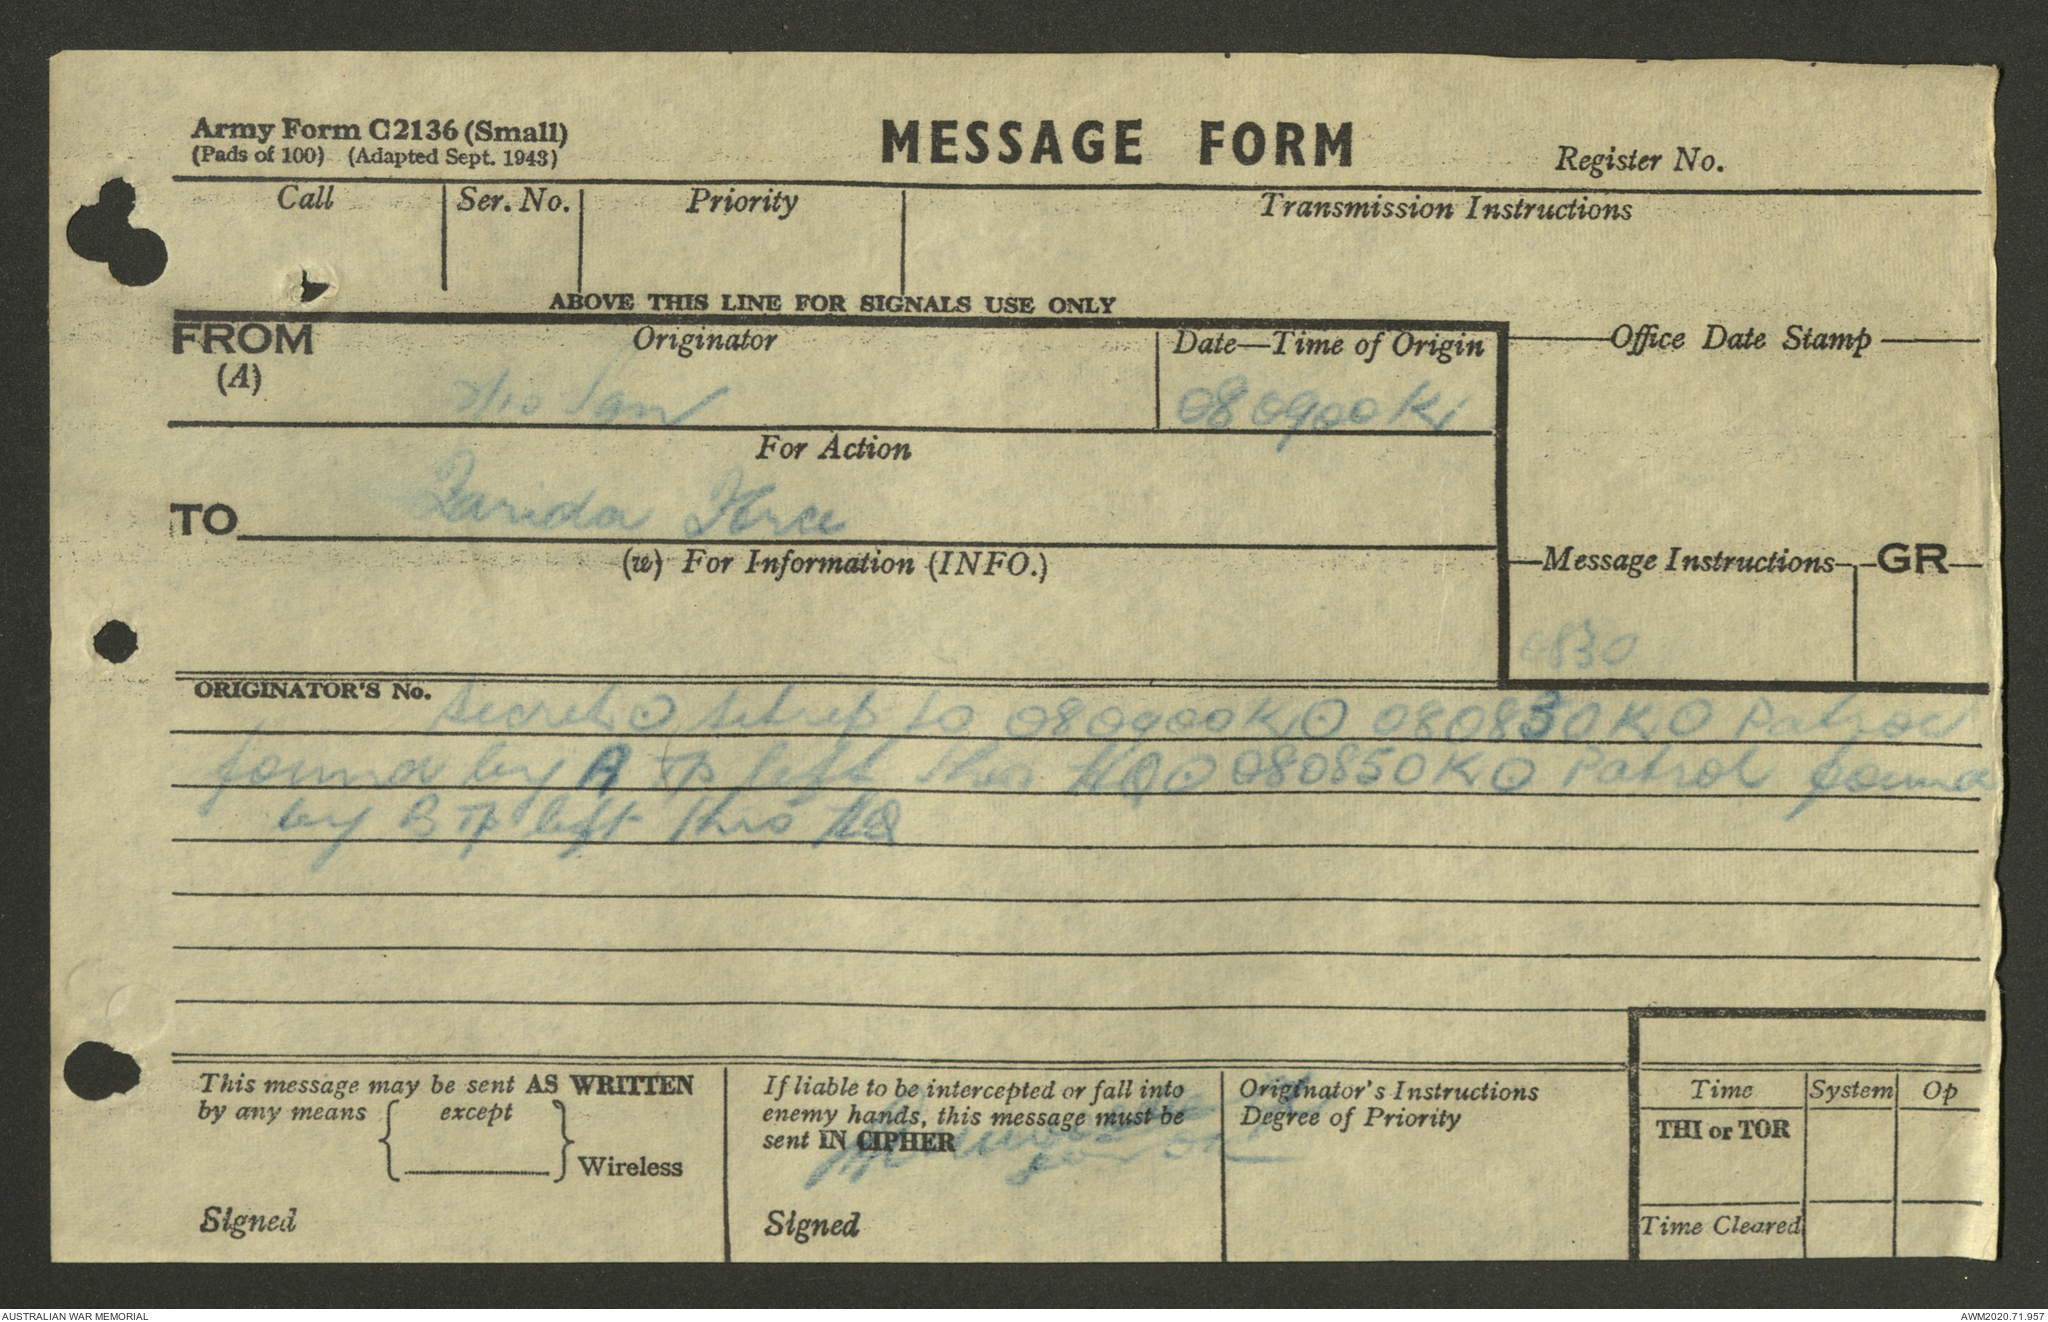 Army Form C2136 (Small)
(Pads of 100) (Adapted Sept. 1943)
MESSAGE FORM
Register No.
Call
Ser. No.
Priority
Transmission Instructions
ABOVE THIS LINE FOR SIGNALS USE ONLY
FROM
(A)
Originator
Date—Time of Origin
080900K
Office Date Stamp
For Action
TO
Force
(w) For Information (INFO.)
Message Instructions
GR
0830
ORIGINATOR'S No.
Secret ⊙ Sitrep to 080900K ⊙ 080830K ⊙ Patrol
found by A Tp left this HQ ⊙ 080850K ⊙ Patrol found
by B Tp left this HQ
This message may be sent AS WRITTEN
by any means { except }
Wireless
Signed
If liable to be intercepted or fall into
enemy hands, this message must be
sent IN CIPHER
Signed
Originator's Instructions
Degree of Priority
Time
System
Op
THI or TOR
Time Cleared
AUSTRALIAN WAR MEMORIAL
AWM2020.71.957